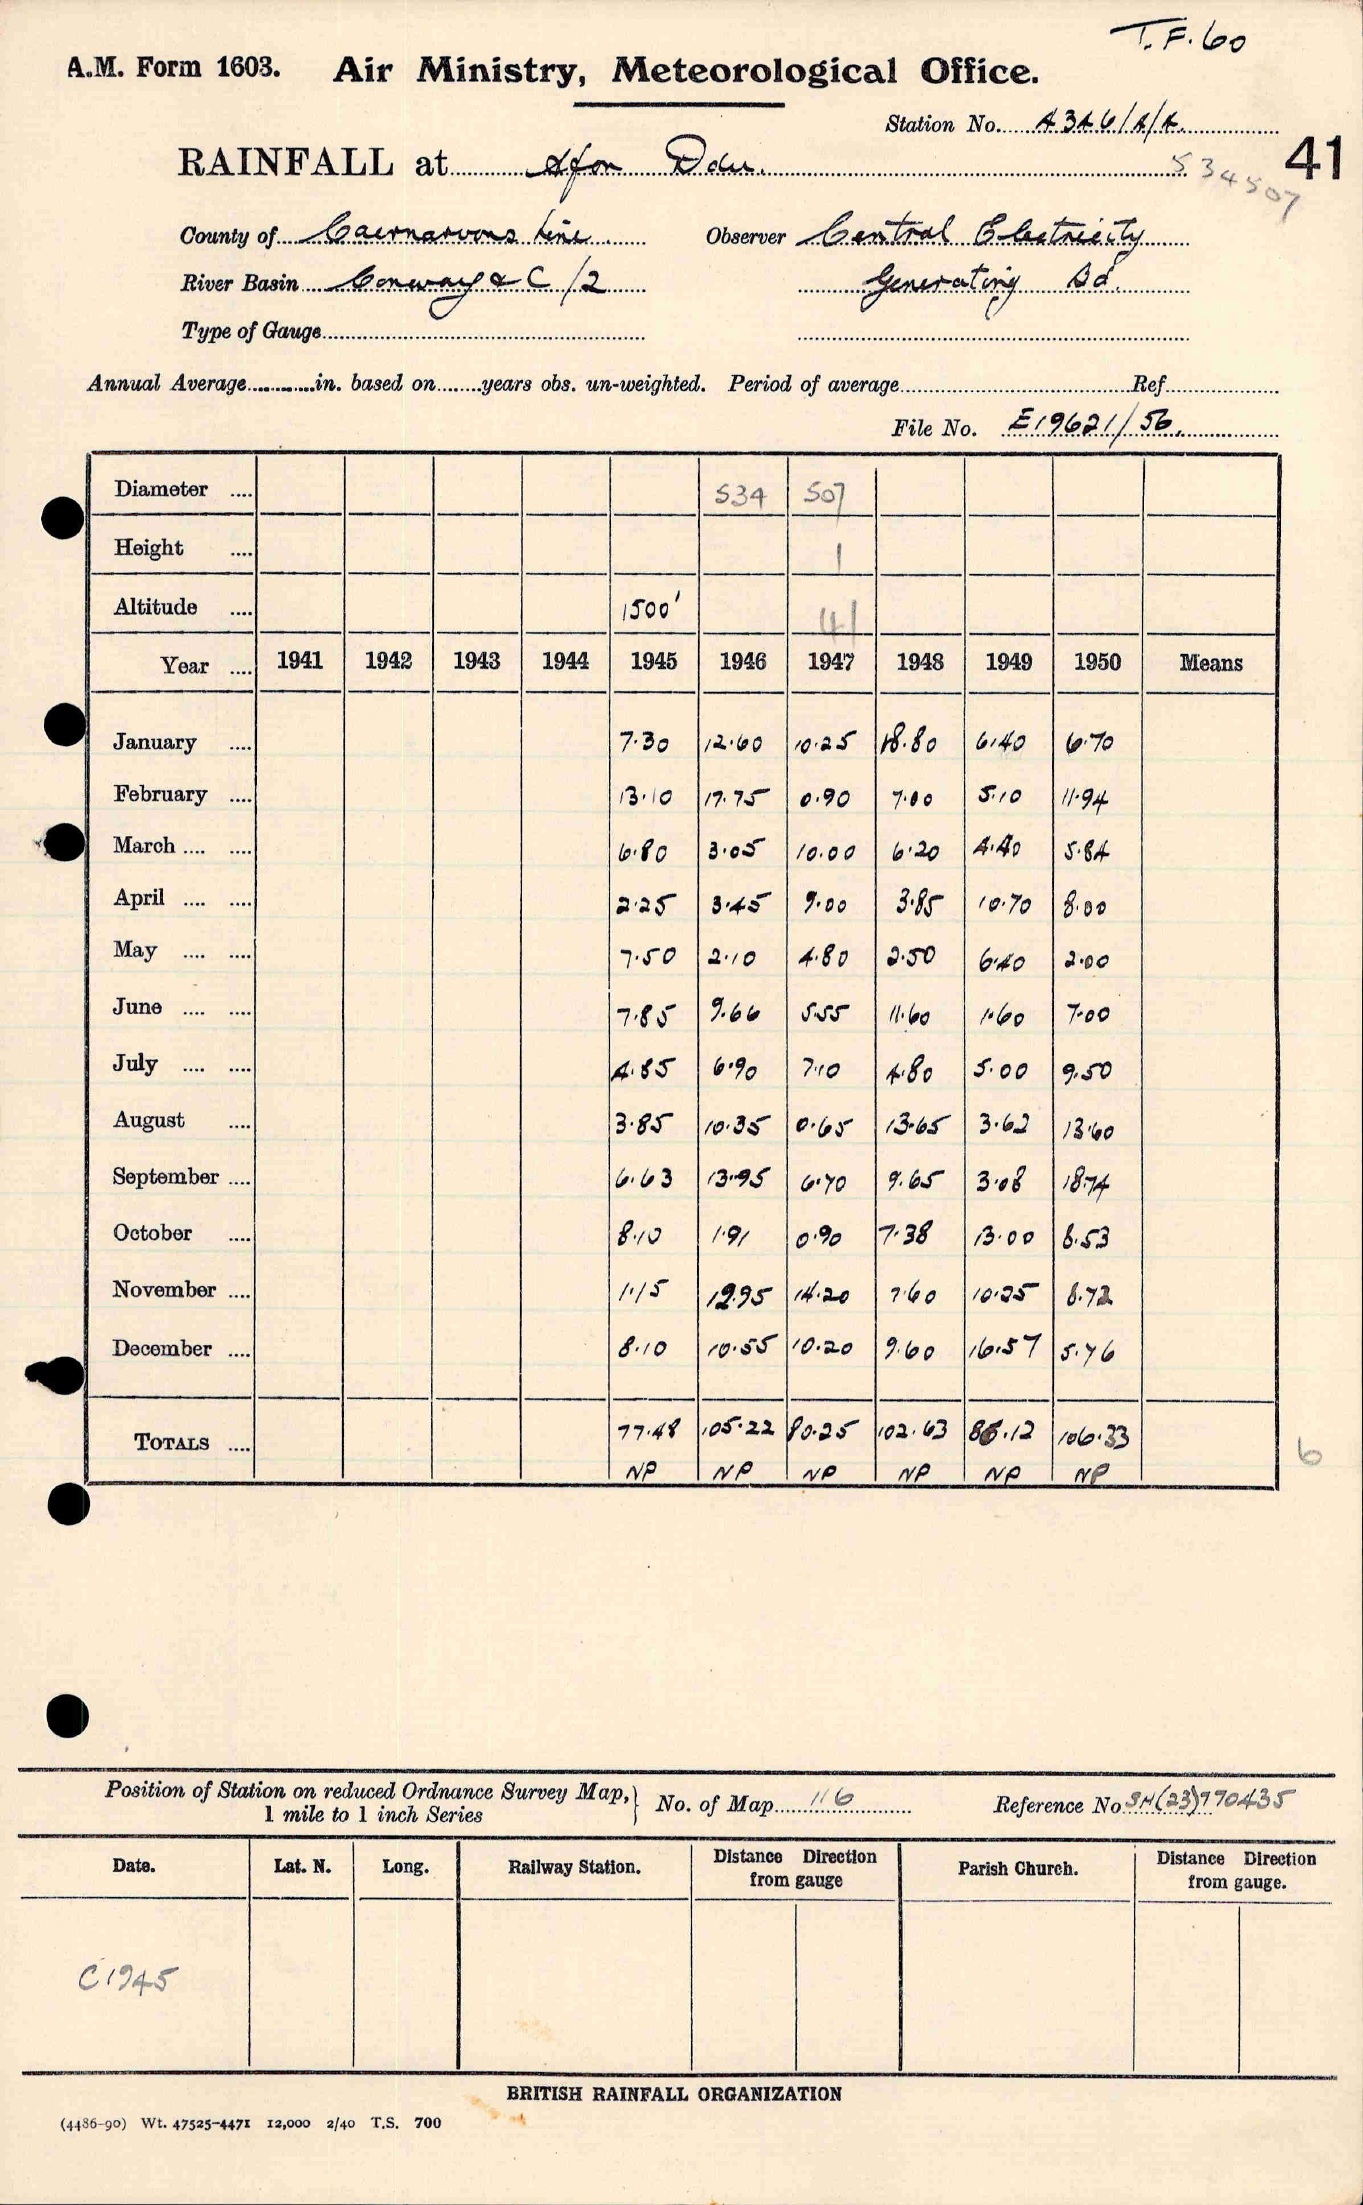 T.F.60
A.M. Form 1603. Air Ministry, Meteorological Office.
Station No. A3A6/A/A.
RAINFALL at Afon Ddu. 534507 41
County of Caernarvonshire. Observer Central Electricity
River Basin Conway & C /2 Generating Bd.
Type of Gauge
Annual Average in. based on years obs. un-weighted. Period of average Ref
File No. E19621/56.
Diameter .... 534 507
Height .... 1
Altitude .... 1500' 41
Year .... 1941 1942 1943 1944 1945 1946 1947 1948 1949 1950 Means
January .... 7.30 12.60 10.25 18.80 6.40 6.70
February .... 13.10 17.75 0.90 7.00 5.10 11.94
March .... .... 6.80 3.05 10.00 6.20 4.40 5.84
April .... .... 2.25 3.45 9.00 3.85 10.70 8.00
May .... .... 7.50 2.10 4.80 2.50 6.40 2.00
June .... .... 7.85 9.66 5.55 11.60 1.60 7.00
July .... .... 4.85 6.90 7.10 4.80 5.00 9.50
August .... 3.85 10.35 0.65 13.65 3.62 13.60
September .... 6.63 13.95 6.70 9.65 3.08 18.74
October .... 8.10 1.91 0.90 7.38 13.00 8.53
November .... 1.15 12.95 14.20 7.60 10.25 8.72
December .... 8.10 10.55 10.20 9.60 16.57 5.76
TOTALS .... 77.48 105.22 80.25 102.63 86.12 106.33
NP NP NP NP NP NP
6
Position of Station on reduced Ordnance Survey Map, 1 mile to 1 inch Series } No. of Map 116 Reference No SH(23)770435
Date. Lat. N. Long. Railway Station. Distance Direction from gauge Parish Church. Distance Direction from gauge.
C1945
BRITISH RAINFALL ORGANIZATION
(4486-90) Wt. 47525-4471 12,000 2/40 T.S. 700